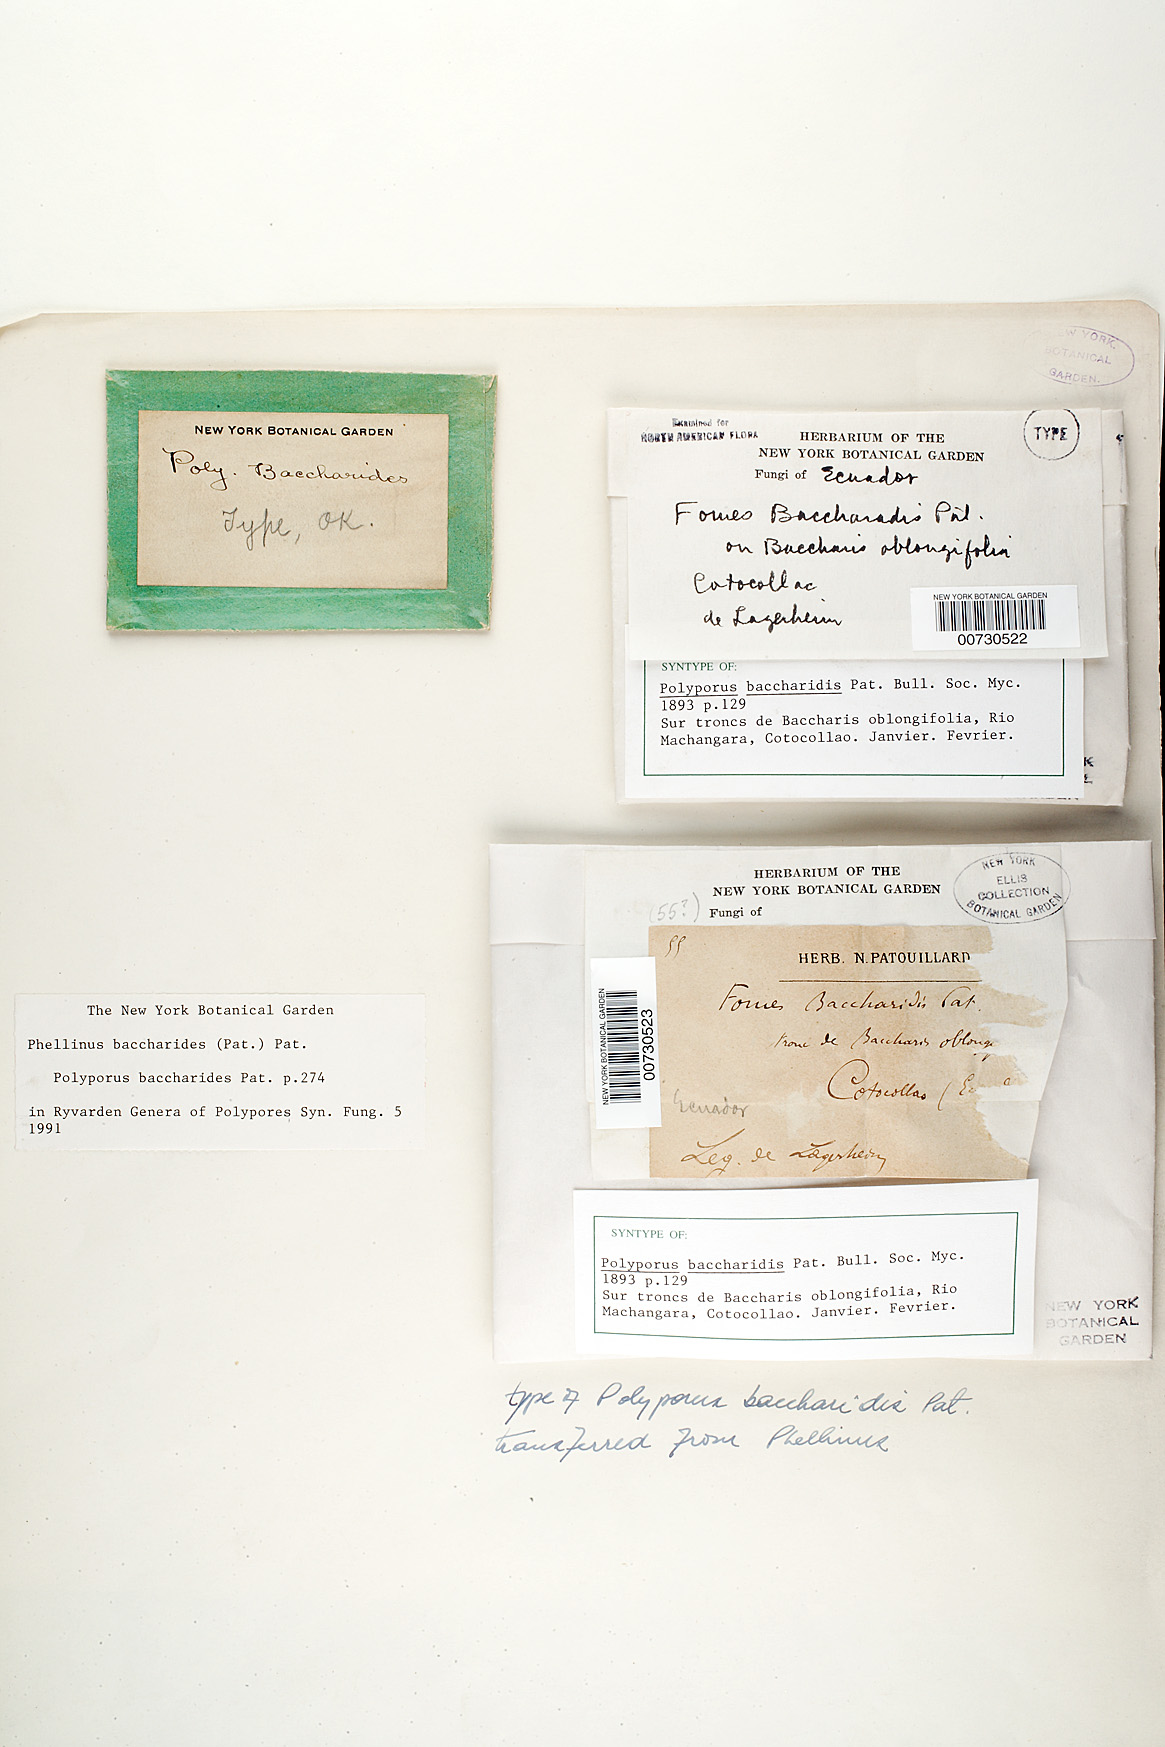 NEW YORK
BOTANICAL
GARDEN.
NEW YORK BOTANICAL GARDEN
Poly. Baccharides
Type, OK.
Examined for
NORTH AMERICAN FLORA
TYPE
HERBARIUM OF THE
NEW YORK BOTANICAL GARDEN
Fungi of Ecuador
Fomes Baccharadis Pat.
on Baccharis oblongifolia
Cotocollac
de Lagerheim
NEW YORK BOTANICAL GARDEN
00730522
SYNTYPE OF:
Polyporus baccharidis Pat. Bull. Soc. Myc.
1893 p.129
Sur troncs de Baccharis oblongifolia, Rio
Machangara, Cotocollao. Janvier. Fevrier.
HERBARIUM OF THE
NEW YORK BOTANICAL GARDEN
(55?) Fungi of
NEW YORK
ELLIS
COLLECTION
BOTANICAL GARDEN
55
HERB. N. PATOUILLARD
Fomes Baccharidis Pat.
tronc de Baccharis oblong
Cotocollao (Ec
Ecuador
Leg. de Lagerheim
NEW YORK BOTANICAL GARDEN
00730523
SYNTYPE OF:
Polyporus baccharidis Pat. Bull. Soc. Myc.
1893 p.129
Sur troncs de Baccharis oblongifolia, Rio
Machangara, Cotocollao. Janvier. Fevrier.
NEW YORK
BOTANICAL
GARDEN
The New York Botanical Garden
Phellinus baccharides (Pat.) Pat.
Polyporus baccharides Pat. p.274
in Ryvarden Genera of Polypores Syn. Fung. 5
1991
type of Polyporus baccharidis Pat.
transferred from Phellinus